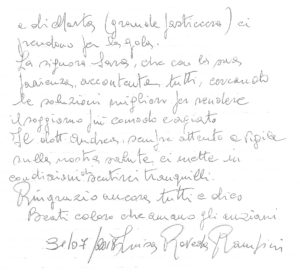 e di Marta (grande pasticcera) ci
prendono per la gola.
La signora Sara, che con la sua
pazienza, accontenta tutti, cercando
le soluzioni migliori per rendere
il soggiorno più comodo e agiato
Il dott. Andrea, sempre attento e vigile
sulla nostra salute ci mette in
condizioni sentirci tranquilli.
Ringrazio ancora tutti e dico
Beati coloro che amano gli anziani
31/07/2018 Luisa Roveda Rampini